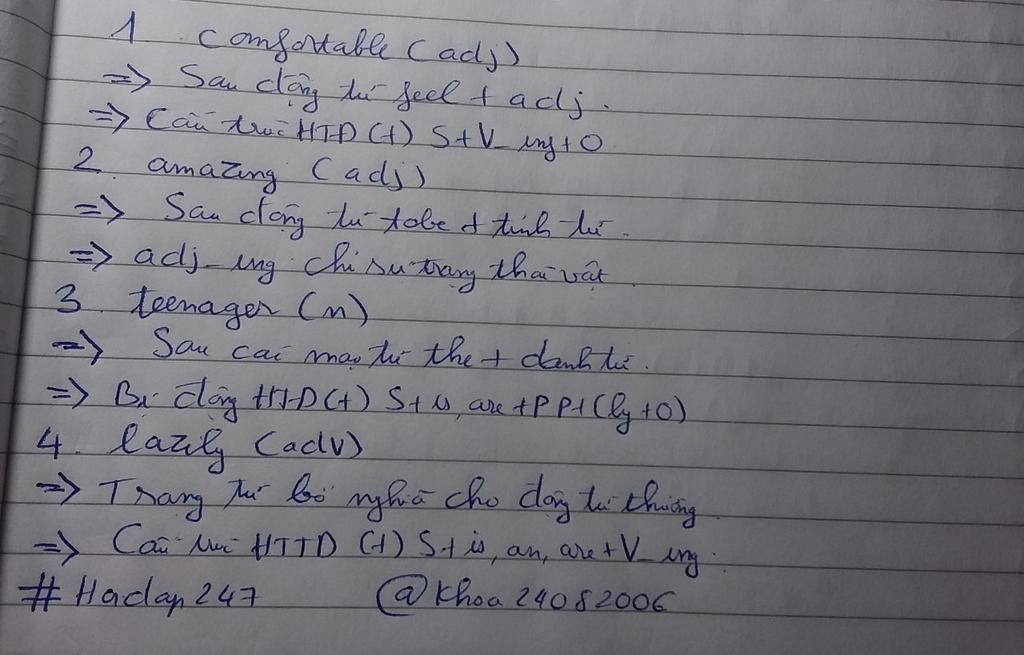 1 comfortable (adj)
=> Sau động từ feel + adj.
=> Cấu trúc HTD (+) S+V_ing+O
2. amazing (adj)
=> Sau động từ tobe + tính từ.
=> adj_ing chỉ sự trạng thái vật
3. teenager (n)
=> Sau các mạo từ the + danh từ.
=> Bị động HTD (+) S+is, are+PP+(by+O)
4. lazily (adv)
=> Trạng từ bổ nghĩa cho động từ thường
=> Cấu trúc HTTD (+) S+is, am, are+V_ing.
#Hoclap247 @Khoa24082006